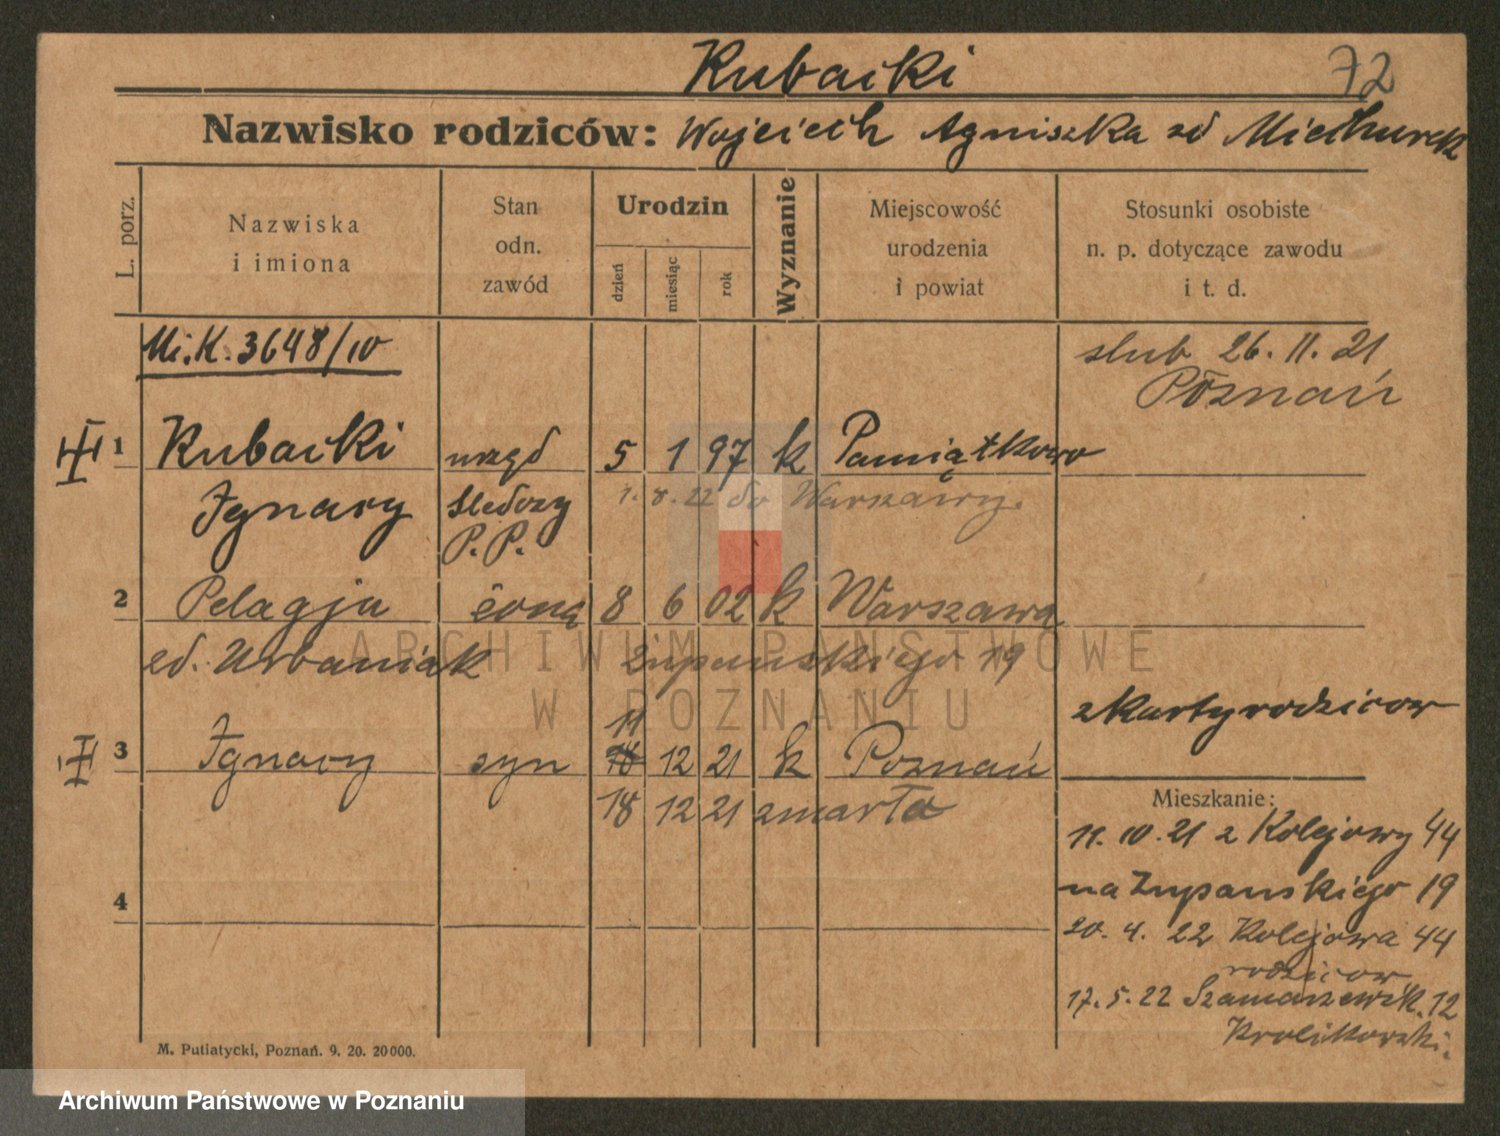 Kubacki 72
Nazwisko rodziców: Wojciech Agniszka zd Miechurek
L. porz.
Nazwiska
i imiona
Stan
odn.
zawód
Urodzin
dzień
miesiąc
rok
Wyznanie
Miejscowość
urodzenia
i powiat
Stosunki osobiste
n. p. dotyczące zawodu
i t. d.
Mi.K. 3648/10
slub 26. 11. 21
Poznań
1 Kubacki urzęd 5 1 97 k Pamiątkowo
Ignacy śledczy 1. 8. 22 do Warszawy.
P. P.
2 Pelagja żona 8 6 02 k Warszawa
zd. Urbaniak Żupanskiego 19
z karty rodzicow
11
3 Ignacy syn 12 21 k Poznań
18 12 21 zmarła
Mieszkanie:
11. 10. 21 z Kolejowy 44
na Zupanskiego 19
4
20. 4. 22 Kolejowa 44
rodzicow
17. 5. 22 Szamarzewsk. 12
Krolikowski.
M. Putiatycki, Poznań. 9. 20. 20000.
ARCHIWUM PAŃSTWOWE
W POZNANIU
Archiwum Państwowe w Poznaniu